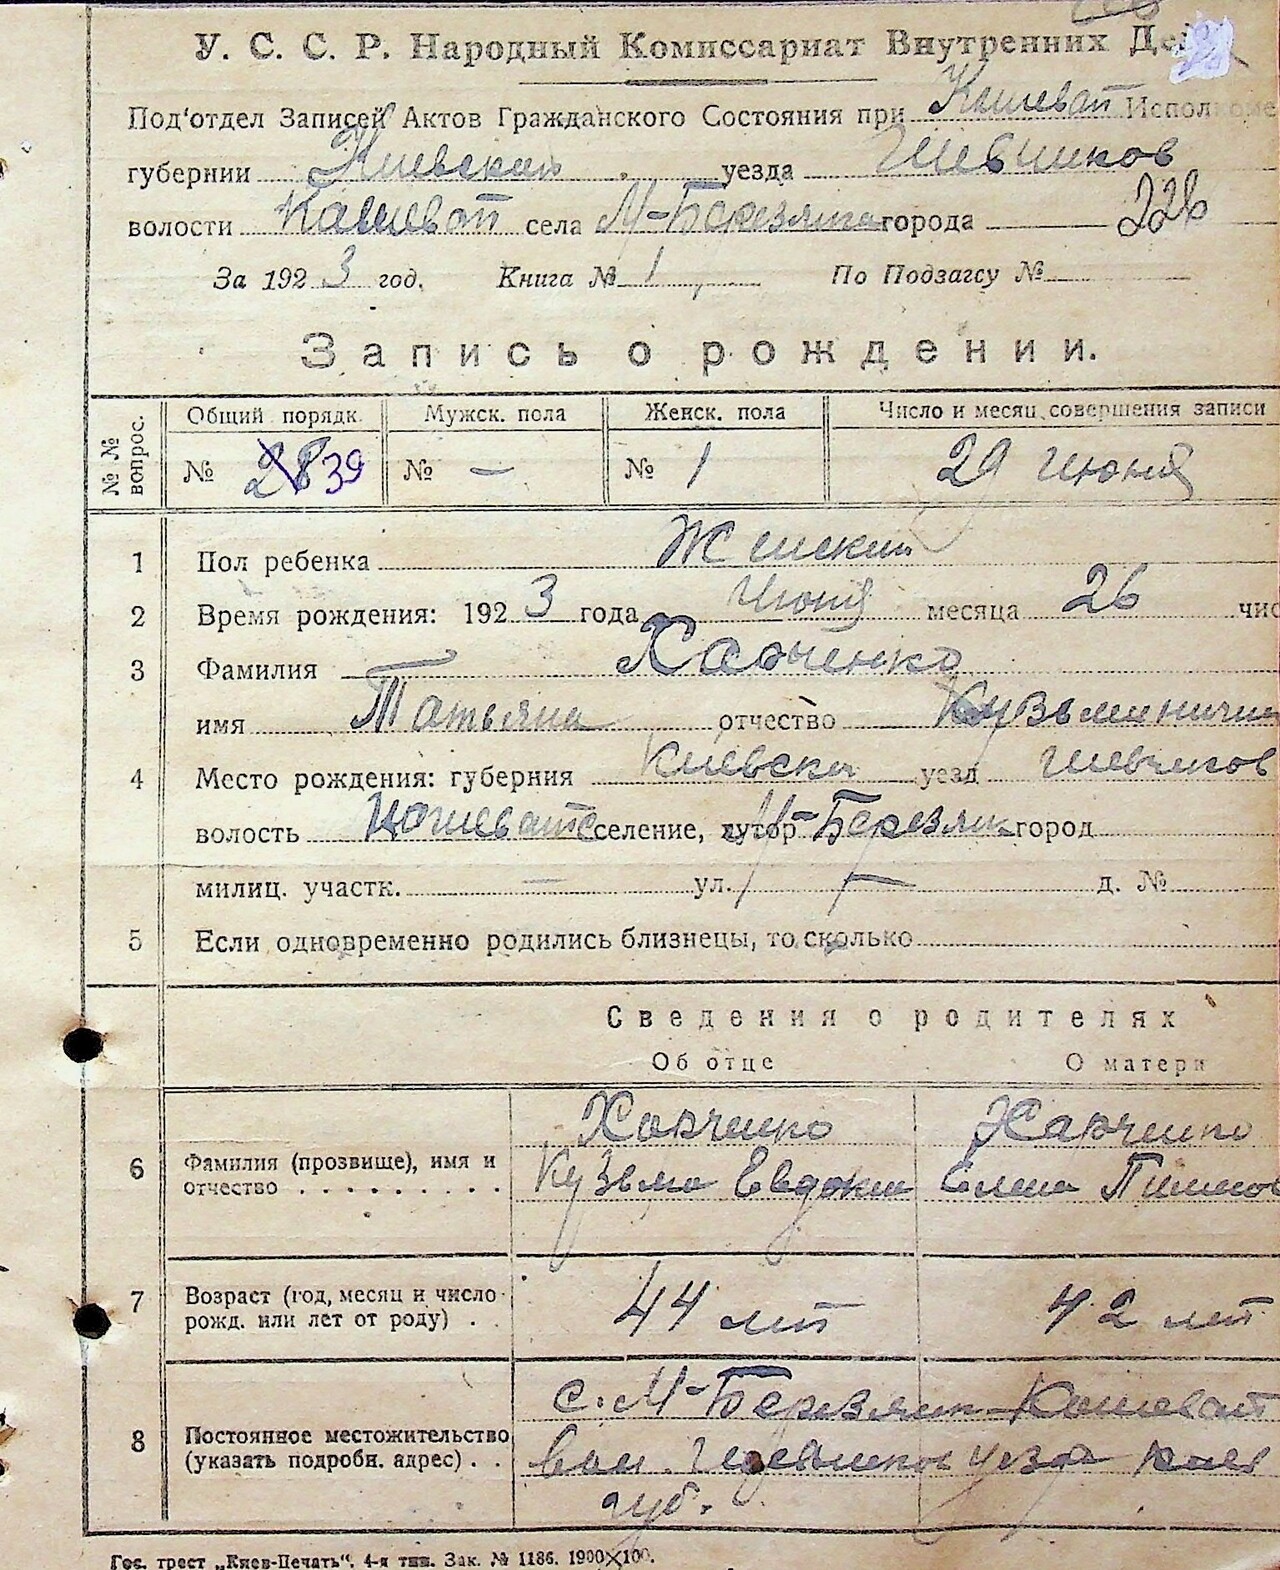 У. С. С. Р. Народный Комиссариат Внутренних
Под'отдел Записей Актов Гражданского Состояния при Кошеват Исполкоме
губернии Киевской уезда Шевчинков
волости Кашеват села М-Березянка города 226
За 1923 год. Книга № 1 По Подзагсу №
Запись о рождении.
№ № вопрос. Общий порядк. Мужск. пола Женск. пола Число и месяц совершения записи
№ 28 39 № — № 1 29 июня
1 Пол ребенка Женский
2 Время рождения: 1923 года Июня месяца 26 чис
3 Фамилия Харченко
имя Татьяна отчество Кузьминична
4 Место рождения: губерния Киевска уезд Шевченков
волость Кошеват селение, хутор М-Березянк город
милиц. участк. — ул. — д. №
5 Если одновременно родились близнецы, то сколько
Сведения о родителях
Об отце О матери
Харченко Харченко
6 Фамилия (прозвище), имя и Кузьма Евдоким Елена
отчество . . . . . . . . .
7 Возраст (год, месяц и число 44 лет 42 лет
рожд. или лет от роду) . .
с. М-Березянк Кошеват
8 Постоянное местожительство вол. уезда Киев
(указать подробн. адрес) . .
губ.
Гос. трест „Киев-Печать“. 4-я тип. Зак. № 1186. 1900×100.